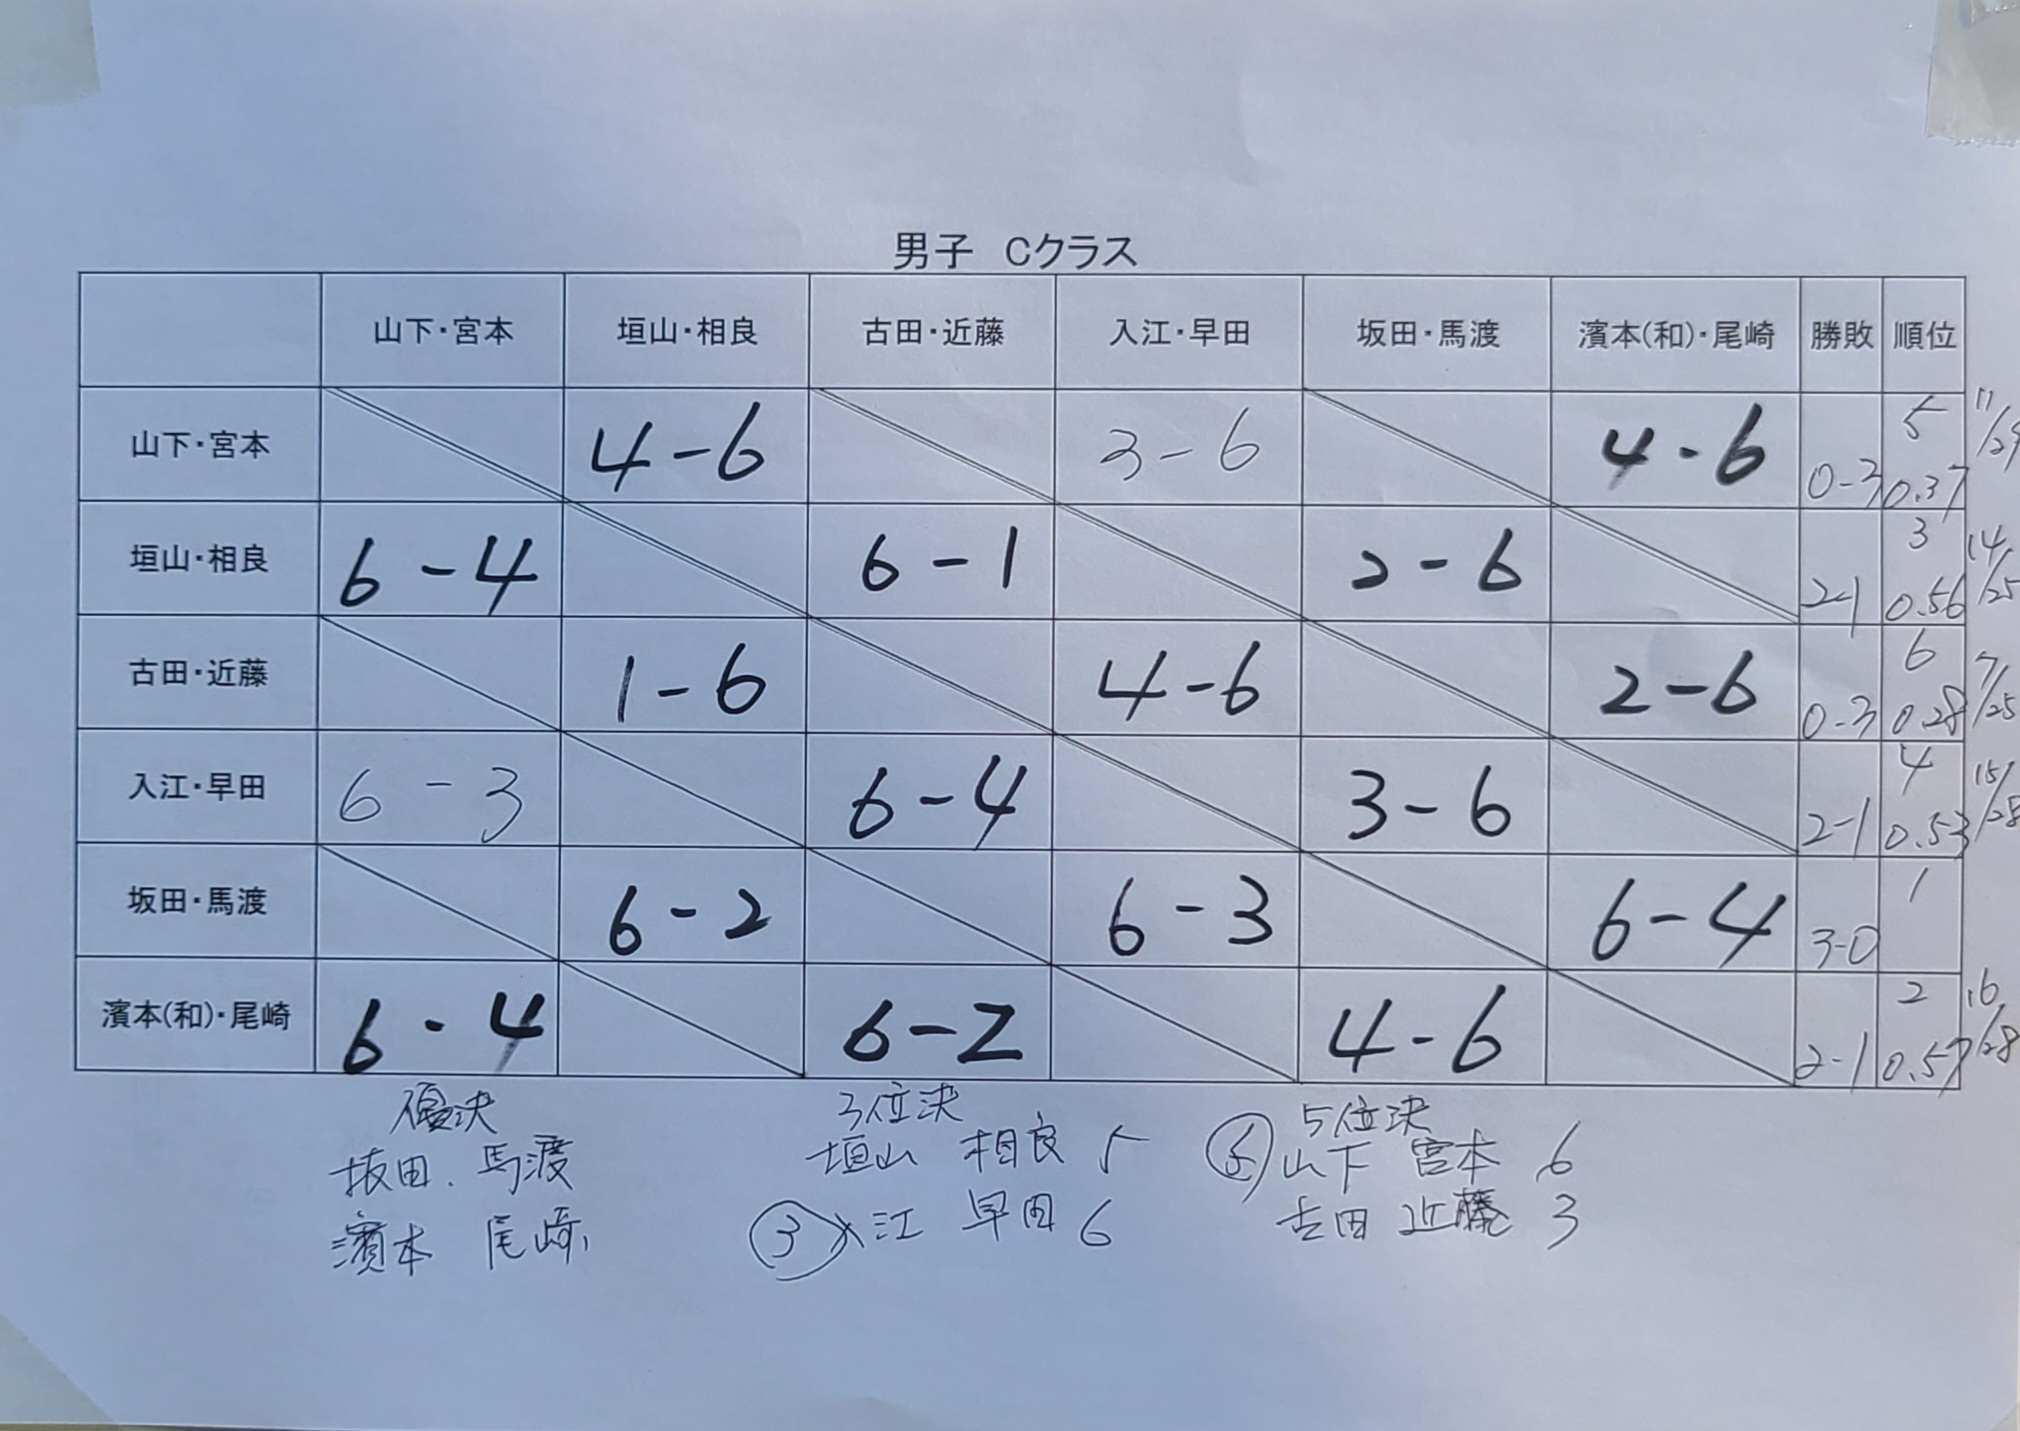 男子 Cクラス
山下・宮本 垣山・相良 古田・近藤 入江・早田 坂田・馬渡 濱本(和)・尾崎 勝敗 順位
山下・宮本 4-6 3-6 4-6 0-3 5 0.37 11/29
垣山・相良 6-4 6-1 2-6 2-1 3 0.56 14/25
古田・近藤 1-6 4-6 2-6 0-3 6 0.28 7/25
入江・早田 6-3 6-4 3-6 2-1 4 0.53 15/28
坂田・馬渡 6-2 6-3 6-4 3-0 1
濱本(和)・尾崎 6-4 6-2 4-6 2-1 2 0.57 16/28
優決
坂田.馬渡
濱本 尾崎
3位決
垣山 相良 5
③入江 早田 6
5位決
⑤山下 宮本 6
古田 近藤 3